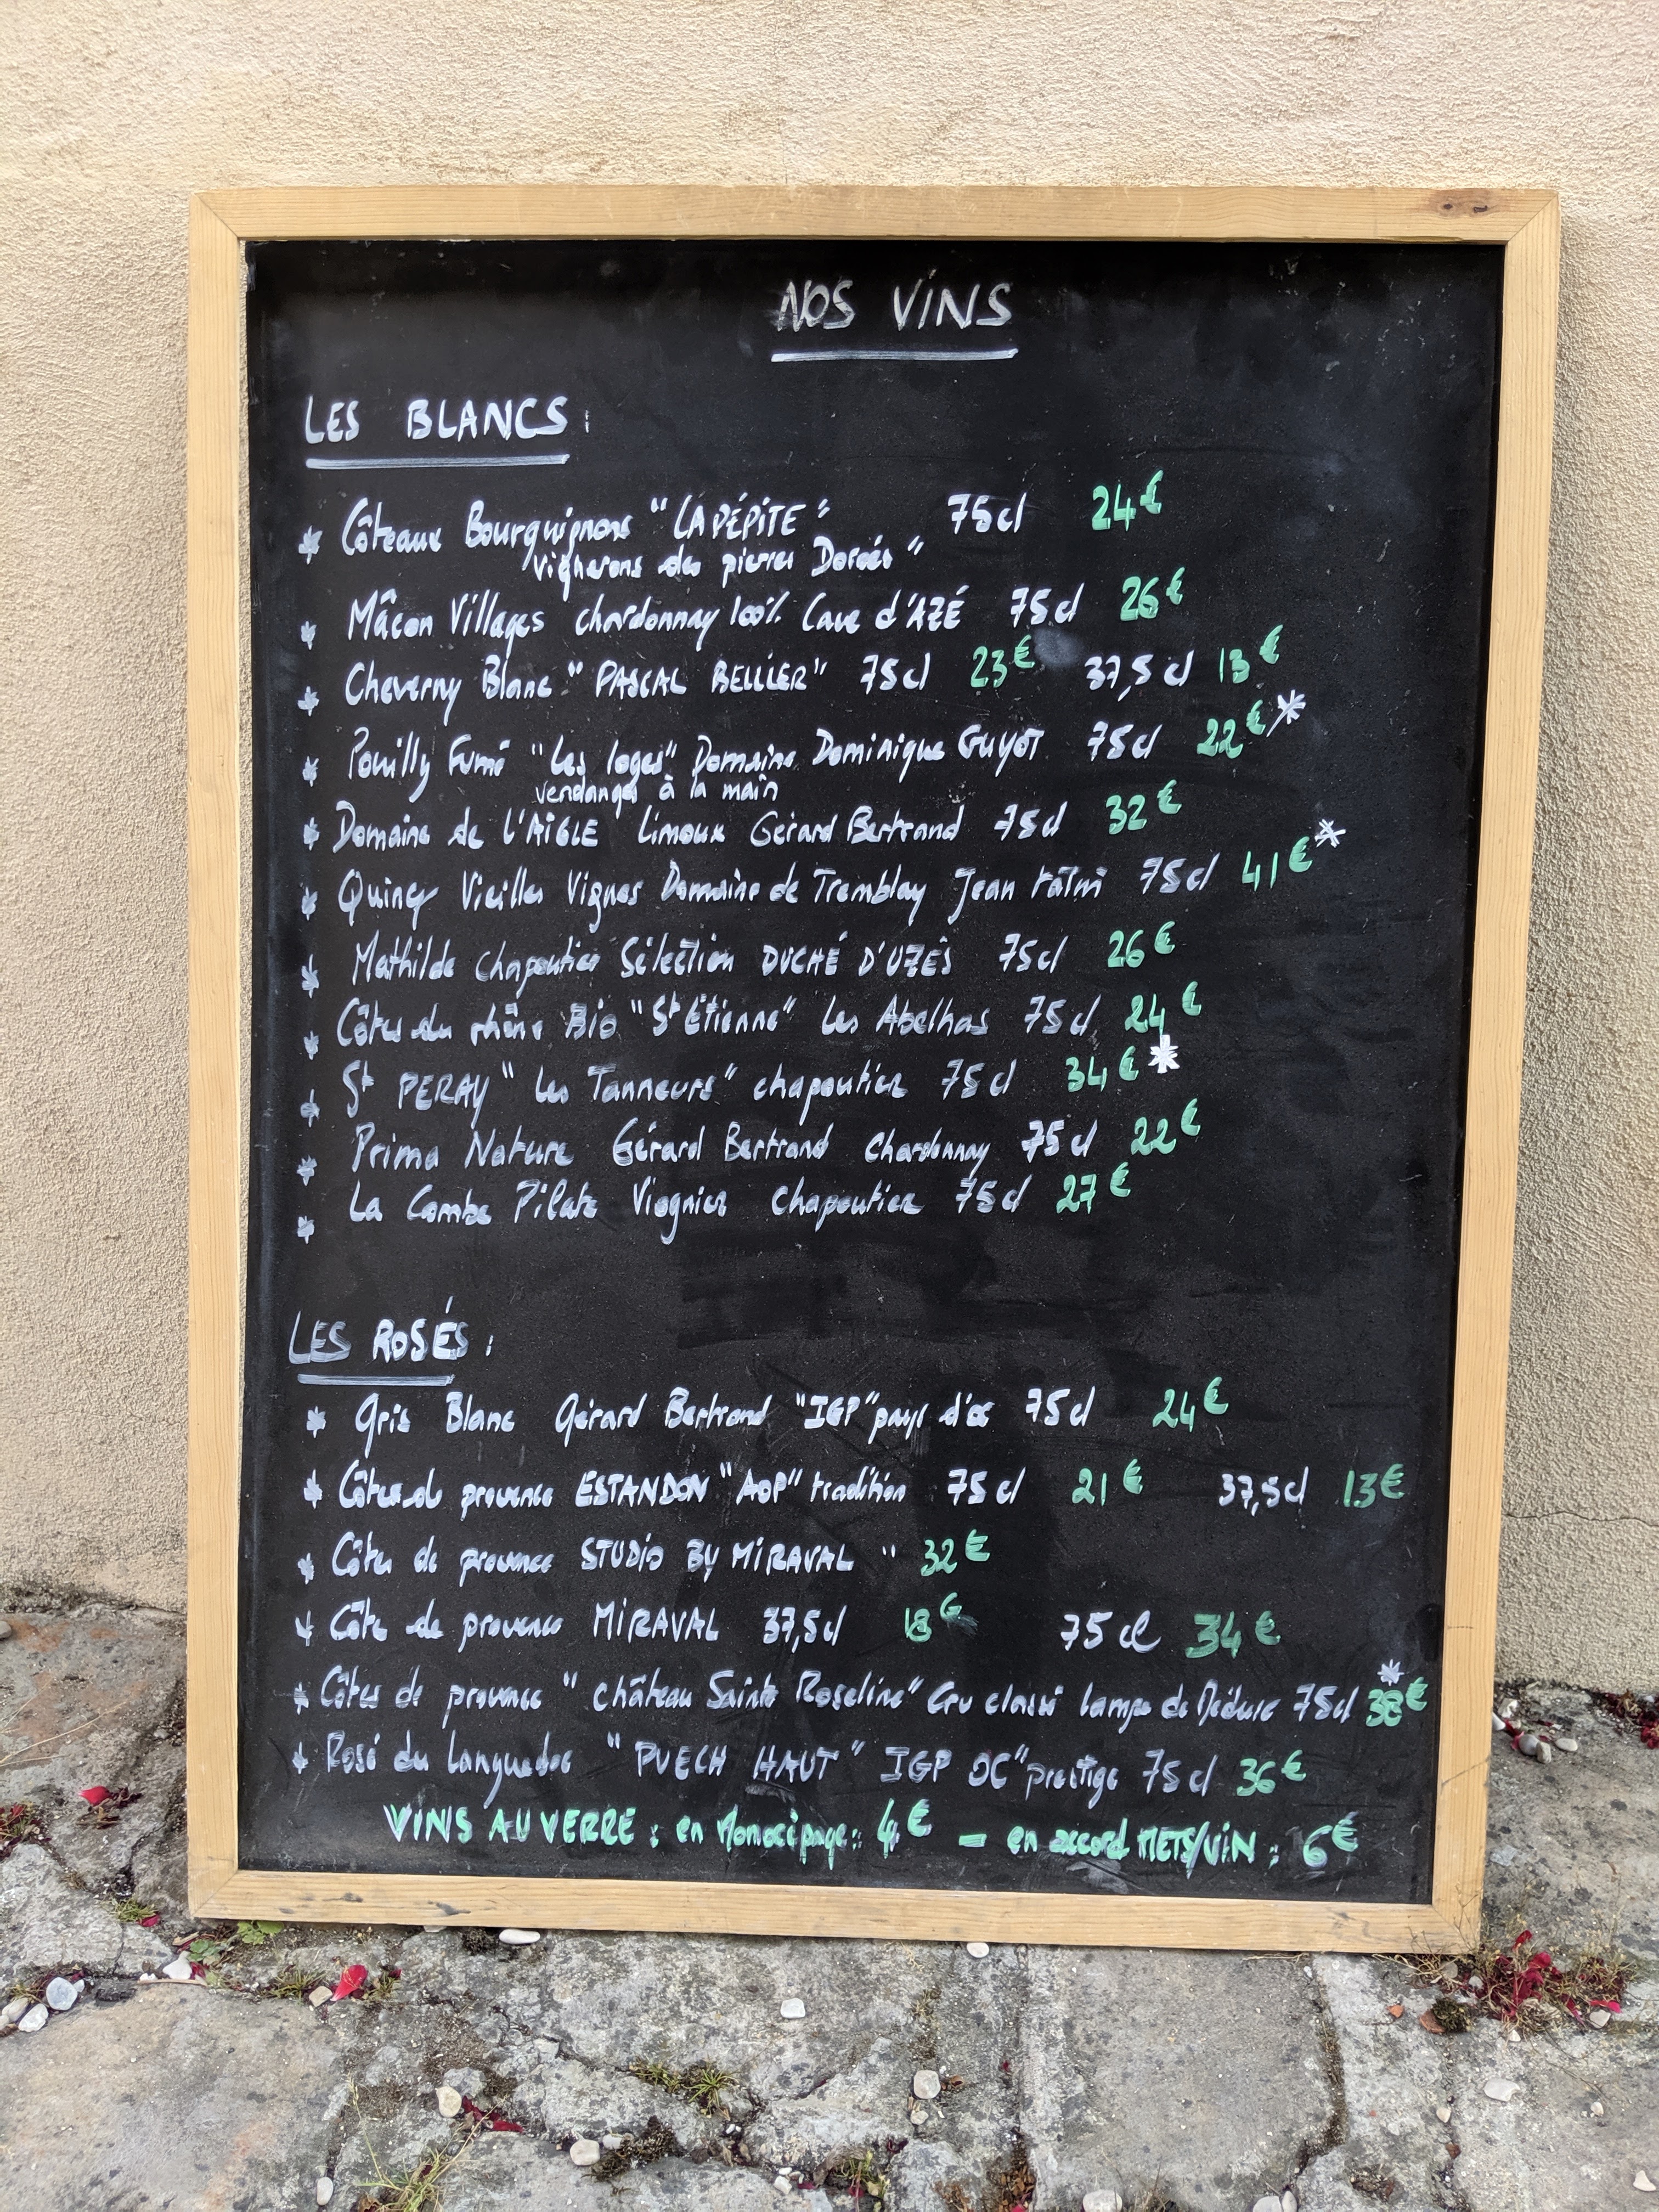 NOS VINS
LES BLANCS :
* Côteaux Bourguignons "LA PÉPITE" 75cl 24€
Vignerons des pierres Dorées"
* Mâcon Villages chardonnay 100% Cave d'AZÉ 75cl 26€
* Cheverny Blanc "PASCAL BELLIER" 75cl 23€ 37,5cl 13€
* Pouilly Fumé "Les loges" Domaine Dominique GUYOT 75cl 22€*
vendanges à la main
* Domaine de L'AIGLE Limoux Gérard Bertrand 75cl 32€
* Quincy Vieilles Vignes Domaine de Tremblay Jean 75cl 41€*
* Mathilde Chapoutier Sélection DUCHÉ D'UZÈS 75cl 26€
* Côtes du rhône Bio "St Étienne" Les Abelhas 75cl 24€
* St PERAY "Les Tanneurs" chapoutier 75cl 34€*
* Prima Nature Gérard Bertrand Chardonnay 75cl 22€
* La Combe Pilate Viognier Chapoutier 75cl 27€
LES ROSÉS :
* Gris Blanc Gérard Bertrand "IGP" pays d'oc 75cl 24€
* Côtes de provence ESTANDON "AOP" tradition 75cl 21€ 37,5cl 13€
* Côtes de provence STUDIO BY MIRAVAL " 32€
* Côte de provence MIRAVAL 37,5cl 18€ 75cl 34€
* Côtes de provence "château Sainte Roseline" Cru classé lampe de Méduse 75cl 38€*
* Rosé du Languedoc "PUECH HAUT" IGP OC" prestige 75cl 36€
VINS AU VERRE : en Monocépage : 4€ - en accord METS/VIN : 6€